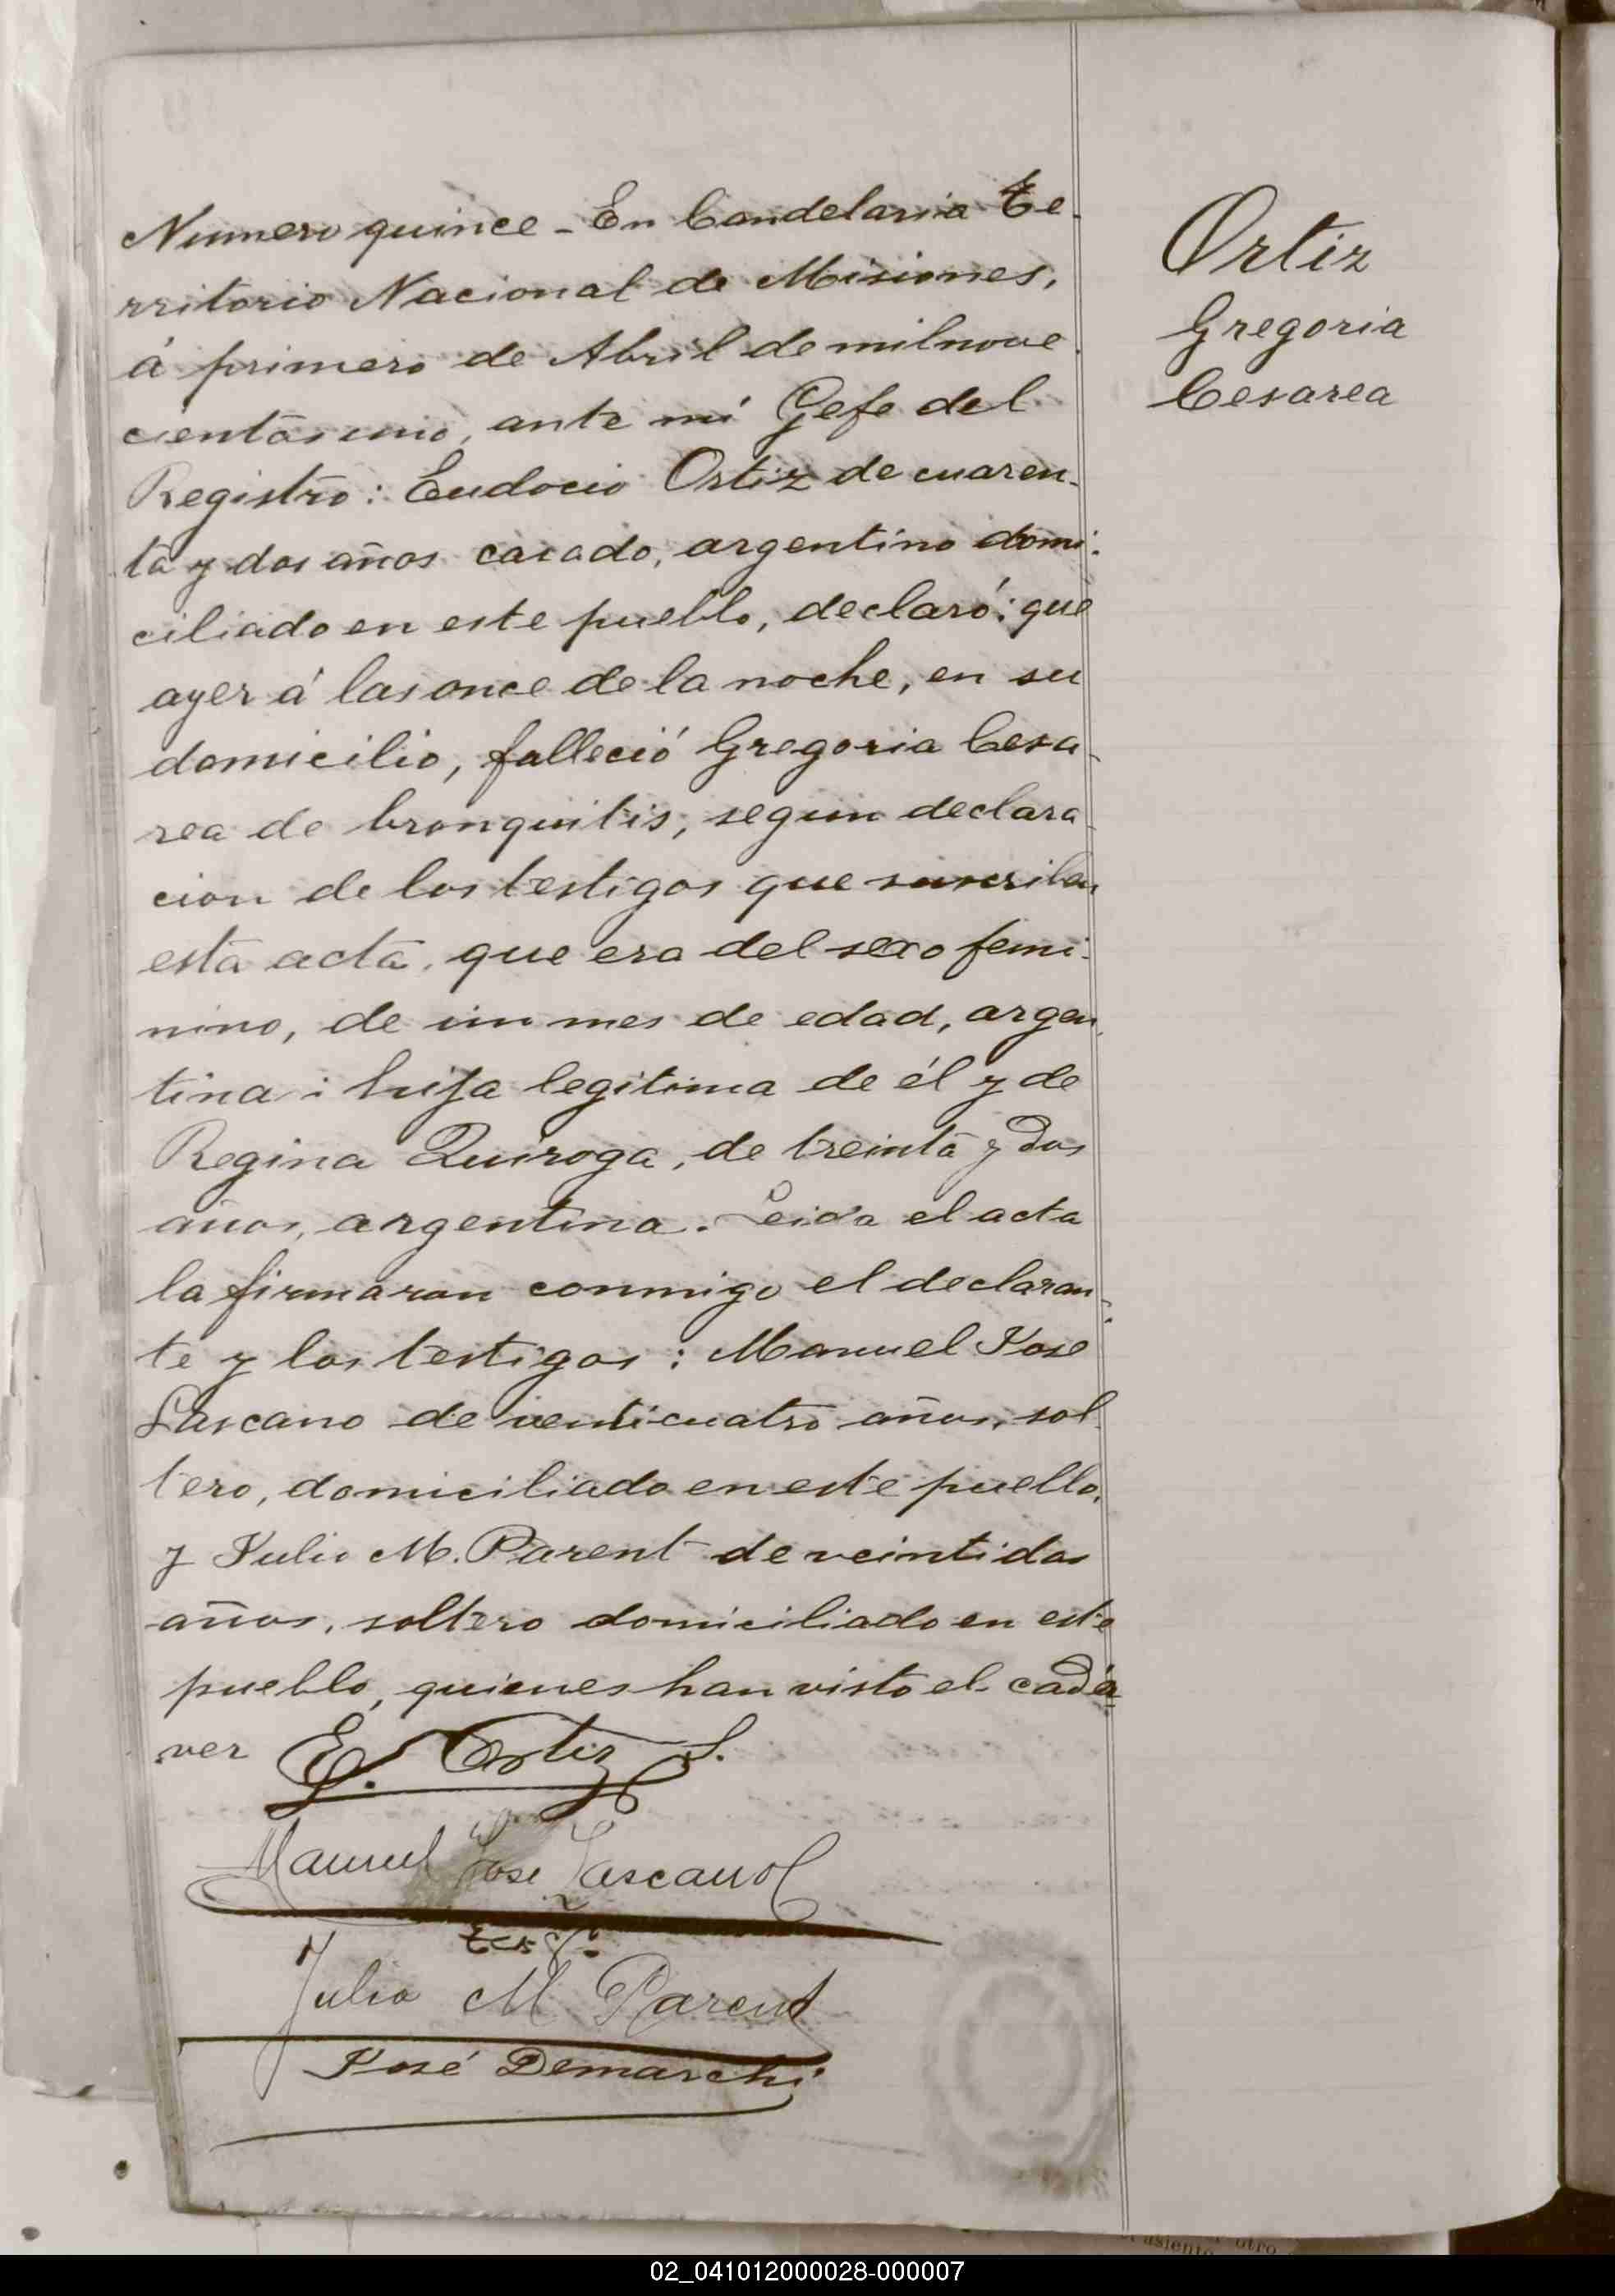 Numero quince - En Candelaria Te-
rritorio Nacional de Misiones,
á primero de Abril de milnove
cientos uno, ante mí Gefe del
Registro: Eudocio Ortiz de cuaren-
ta y dos años casado, argentino domi-
ciliado en este pueblo, declaró: que
ayer á las once de la noche, en su
domicilio, falleció Gregoria Cesa-
rea de bronquitis, segun declara-
cion de los testigos que suscriben
esta acta, que era del sexo femi-
nino, de un mes de edad, argen-
tina: hija legitima de él y de
Regina Quiroga, de treinta y dos
años, argentina. Leida el acta
la firmaron conmigo el declaran-
te y los testigos: Manuel Jose
Lascano de venticuatro años, sol-
tero, domiciliado en este pueblo,
y Julio M. Parent de veintidos
años, soltero domiciliado en este
pueblo, quienes han visto el cadá-
ver
E. Ortiz S.
Manuel Jose Lascano
Julio M Parent
José Demarchi
Ortiz
Gregoria
Cesarea
asiento otro
02_041012000028-000007